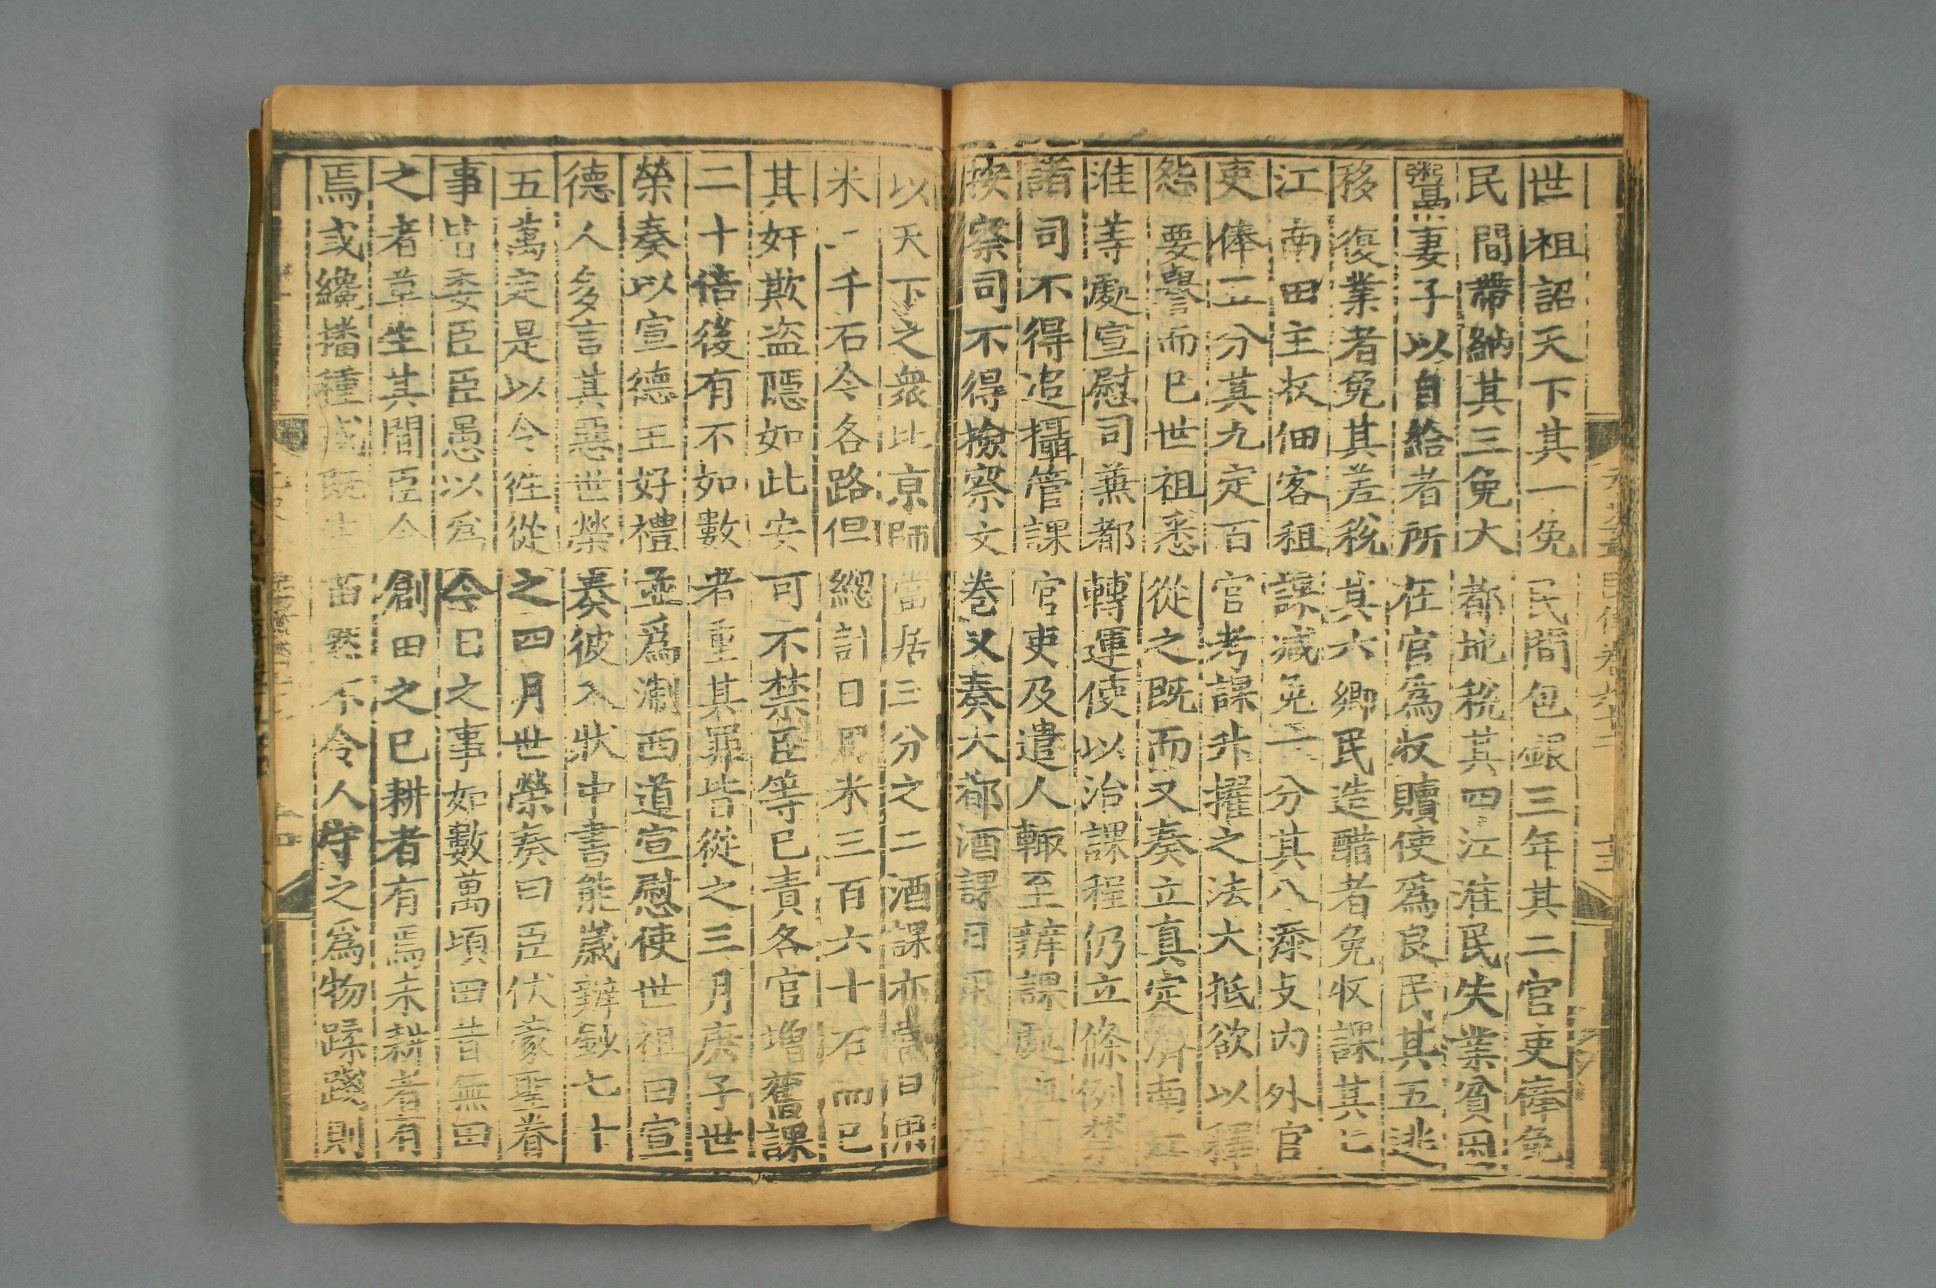 世祖詔天下其一免民間包銀三年其二官吏俸免
民間帶納其三免大都地稅其四江淮民失業貧困
鬻妻子以自給者所在官爲收贖使爲良民其五逃
移復業者免其差稅其六鄉民造醋者免收課其七
江南田主收佃客租課減免一分其八添支內外官
吏俸五分其九定百官考課升擢之法大抵欲以釋
怨要譽而已世祖悉從之既而又奏立真定濟南江
淮等處宣慰司兼都轉運使以治課程仍立條例禁
諸司不得追攝管課官吏及遣人輒至辦課處
按察司不得檢察文卷又奏大都酒課日用米千石
以天下之衆比京師當居三分之二酒課亦當日用
米二千石今各路但總計日用米三百六十石而已
其奸欺盜隱如此安可不禁臣等已責各官增舊課
二十倍後有不如數者重其罪皆從之三月庚子世
榮奏以宣德王好禮並爲淛西道宣慰使世祖曰宣
德人多言其惡世榮奏彼入狀中書能歲辦鈔七十
五萬定是以令往從之四月世榮奏曰臣伏蒙聖眷
事皆委臣臣愚以爲今日之事如數萬頃田昔無田
之者草生其間臣今創田之已耕者有焉未耕者有
焉或纔播種或既生苗然不令人守之爲物蹂踐則